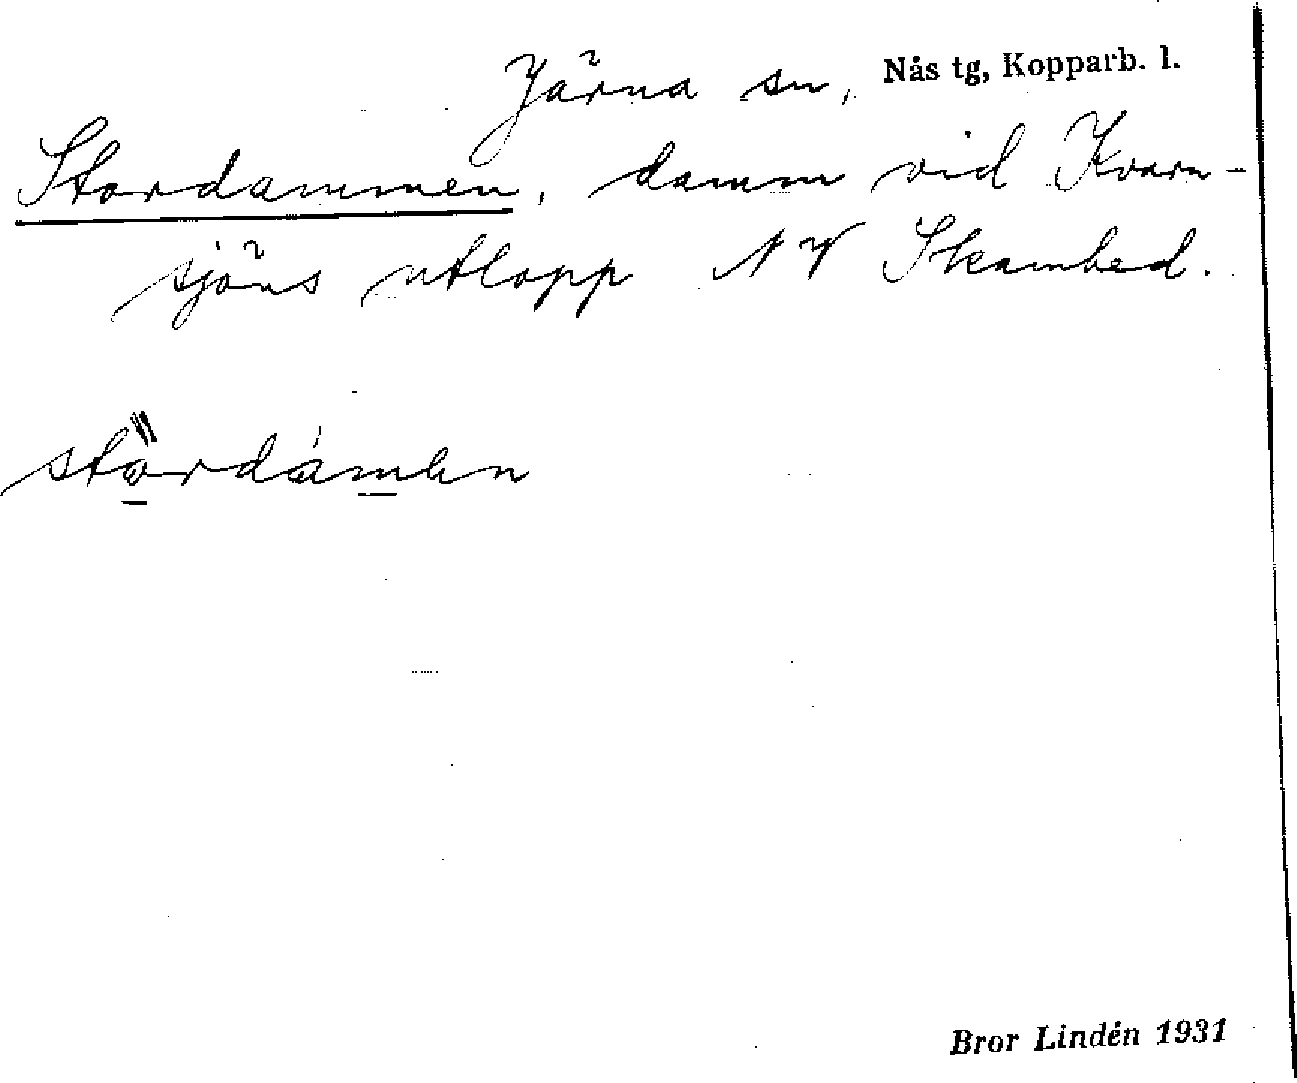 Järna sn, Nås tg, Kopparb. l.
Stordammen, damm vid Kvarn-
sjöns utlopp NV Skamhed.
stòrdámen
Bror Lindén 1931